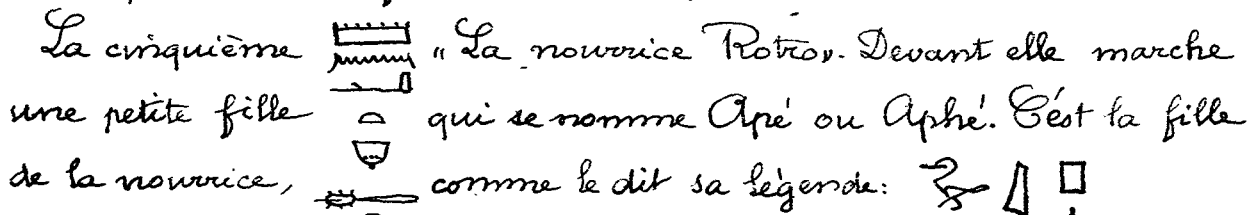 La cinquième « La nourrice Rotro ». Devant elle marche
une petite fille qui se nomme Apé ou Aphé. C'est la fille
de la nourrice, comme le dit sa légende: